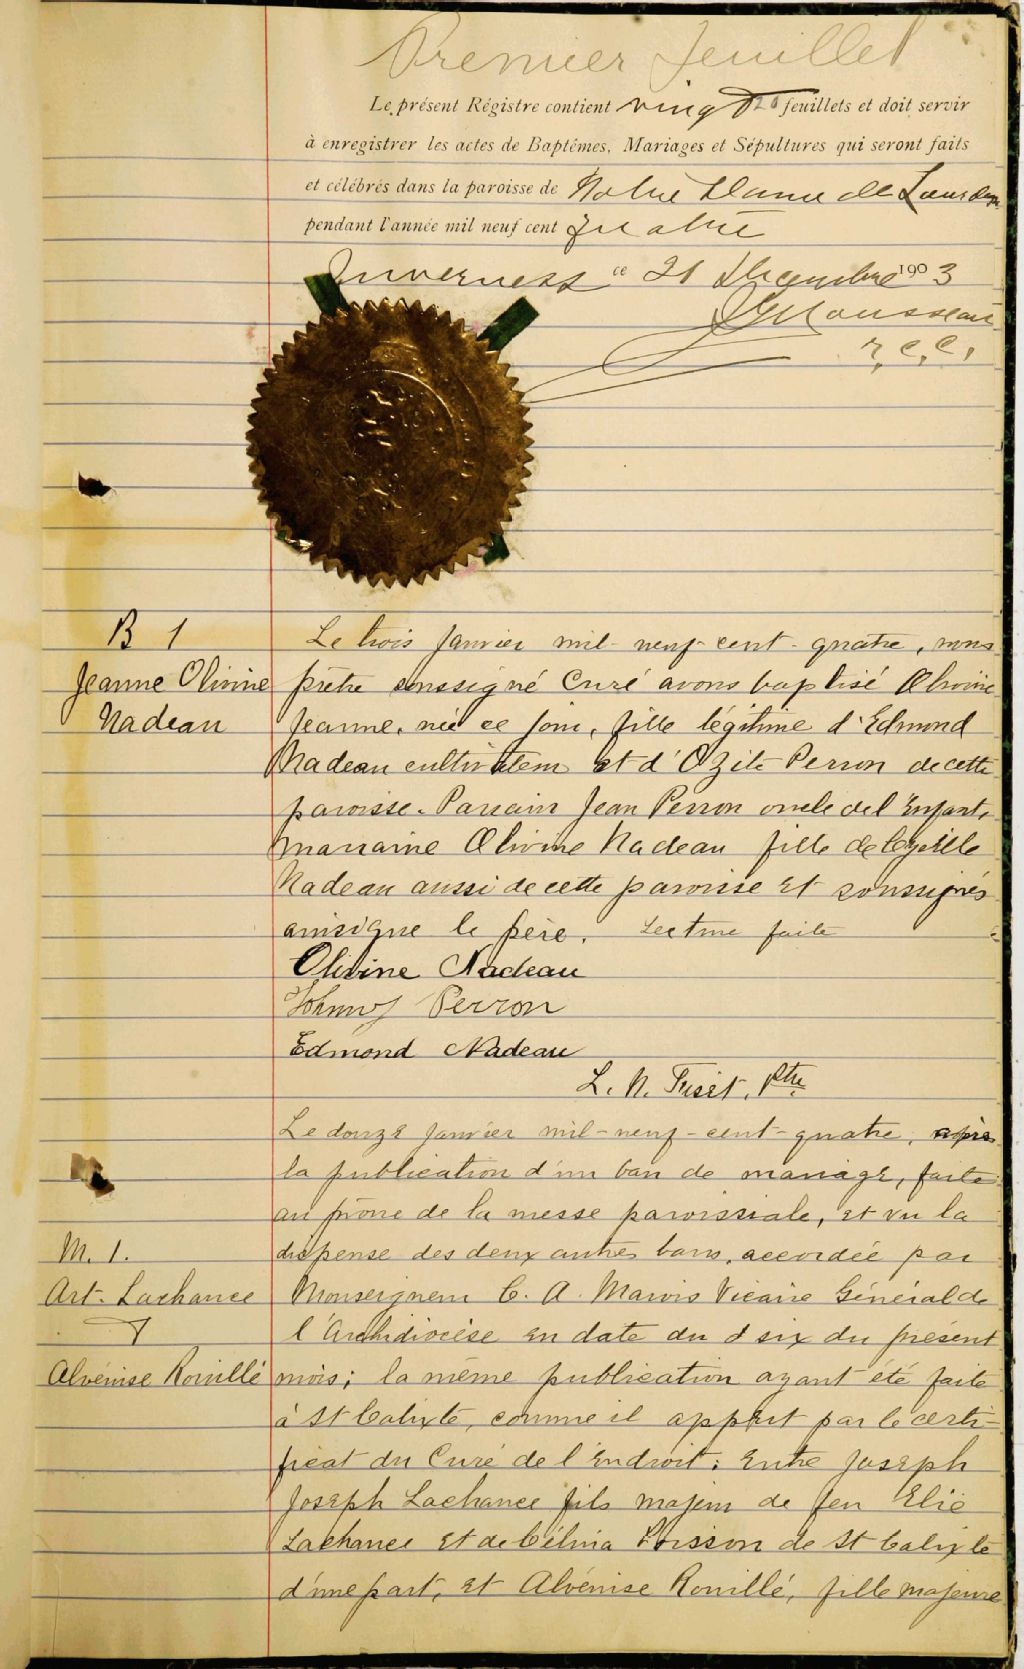 Premier feuillet
Le présent Régistre contient vingt 20 feuillets et doit servir
à enregistrer les actes de Baptêmes, Mariages et Sépultures qui seront faits
et célébrés dans la paroisse de Notre Dame de Lourdes
pendant l'année mil neuf cent quatre
Inverness ce 21 Décembre 1903
Rousseau
B 1
Jeanne Olivine
Nadeau
Le trois Janvier mil-neuf-cent-quatre, nous
prêtre soussigné Curé avons baptisé Olivine
Jeanne, née ce jour, fille légitime d'Edmond
Nadeau cultivateur et d'Ozile Perron de cette
paroisse. Parrain Jean Perron oncle de l'Enfant,
marraine Olivine Nadeau fille de
Nadeau aussi de cette paroisse et soussignés
ainsi que le père. Lecture faite
Olivine Nadeau
Johnny Perron
Edmond Nadeau
L. N. Fiset, Ptre
Le douze Janvier mil-neuf-cent-quatre, après
la publication d'un ban de mariage, faite
au prône de la messe paroissiale, et vu la
dispense des deux autres bans, accordée par
M. 1.
Art. Lachance
&
Alvénise Rouillé
Monseigneur C. A. Marois Vicaire Général de
l'Archidiocèse en date du six du présent
mois; la même publication ayant été faite
à St Calixte, comme il appert par le certi-
ficat du Curé de l'Endroit; Entre Joseph
Joseph Lachance fils majeur de feu Elie
Lachance et de Célina Poisson de St Calixte
d'une part, et Alvénise Rouillé, fille majeure